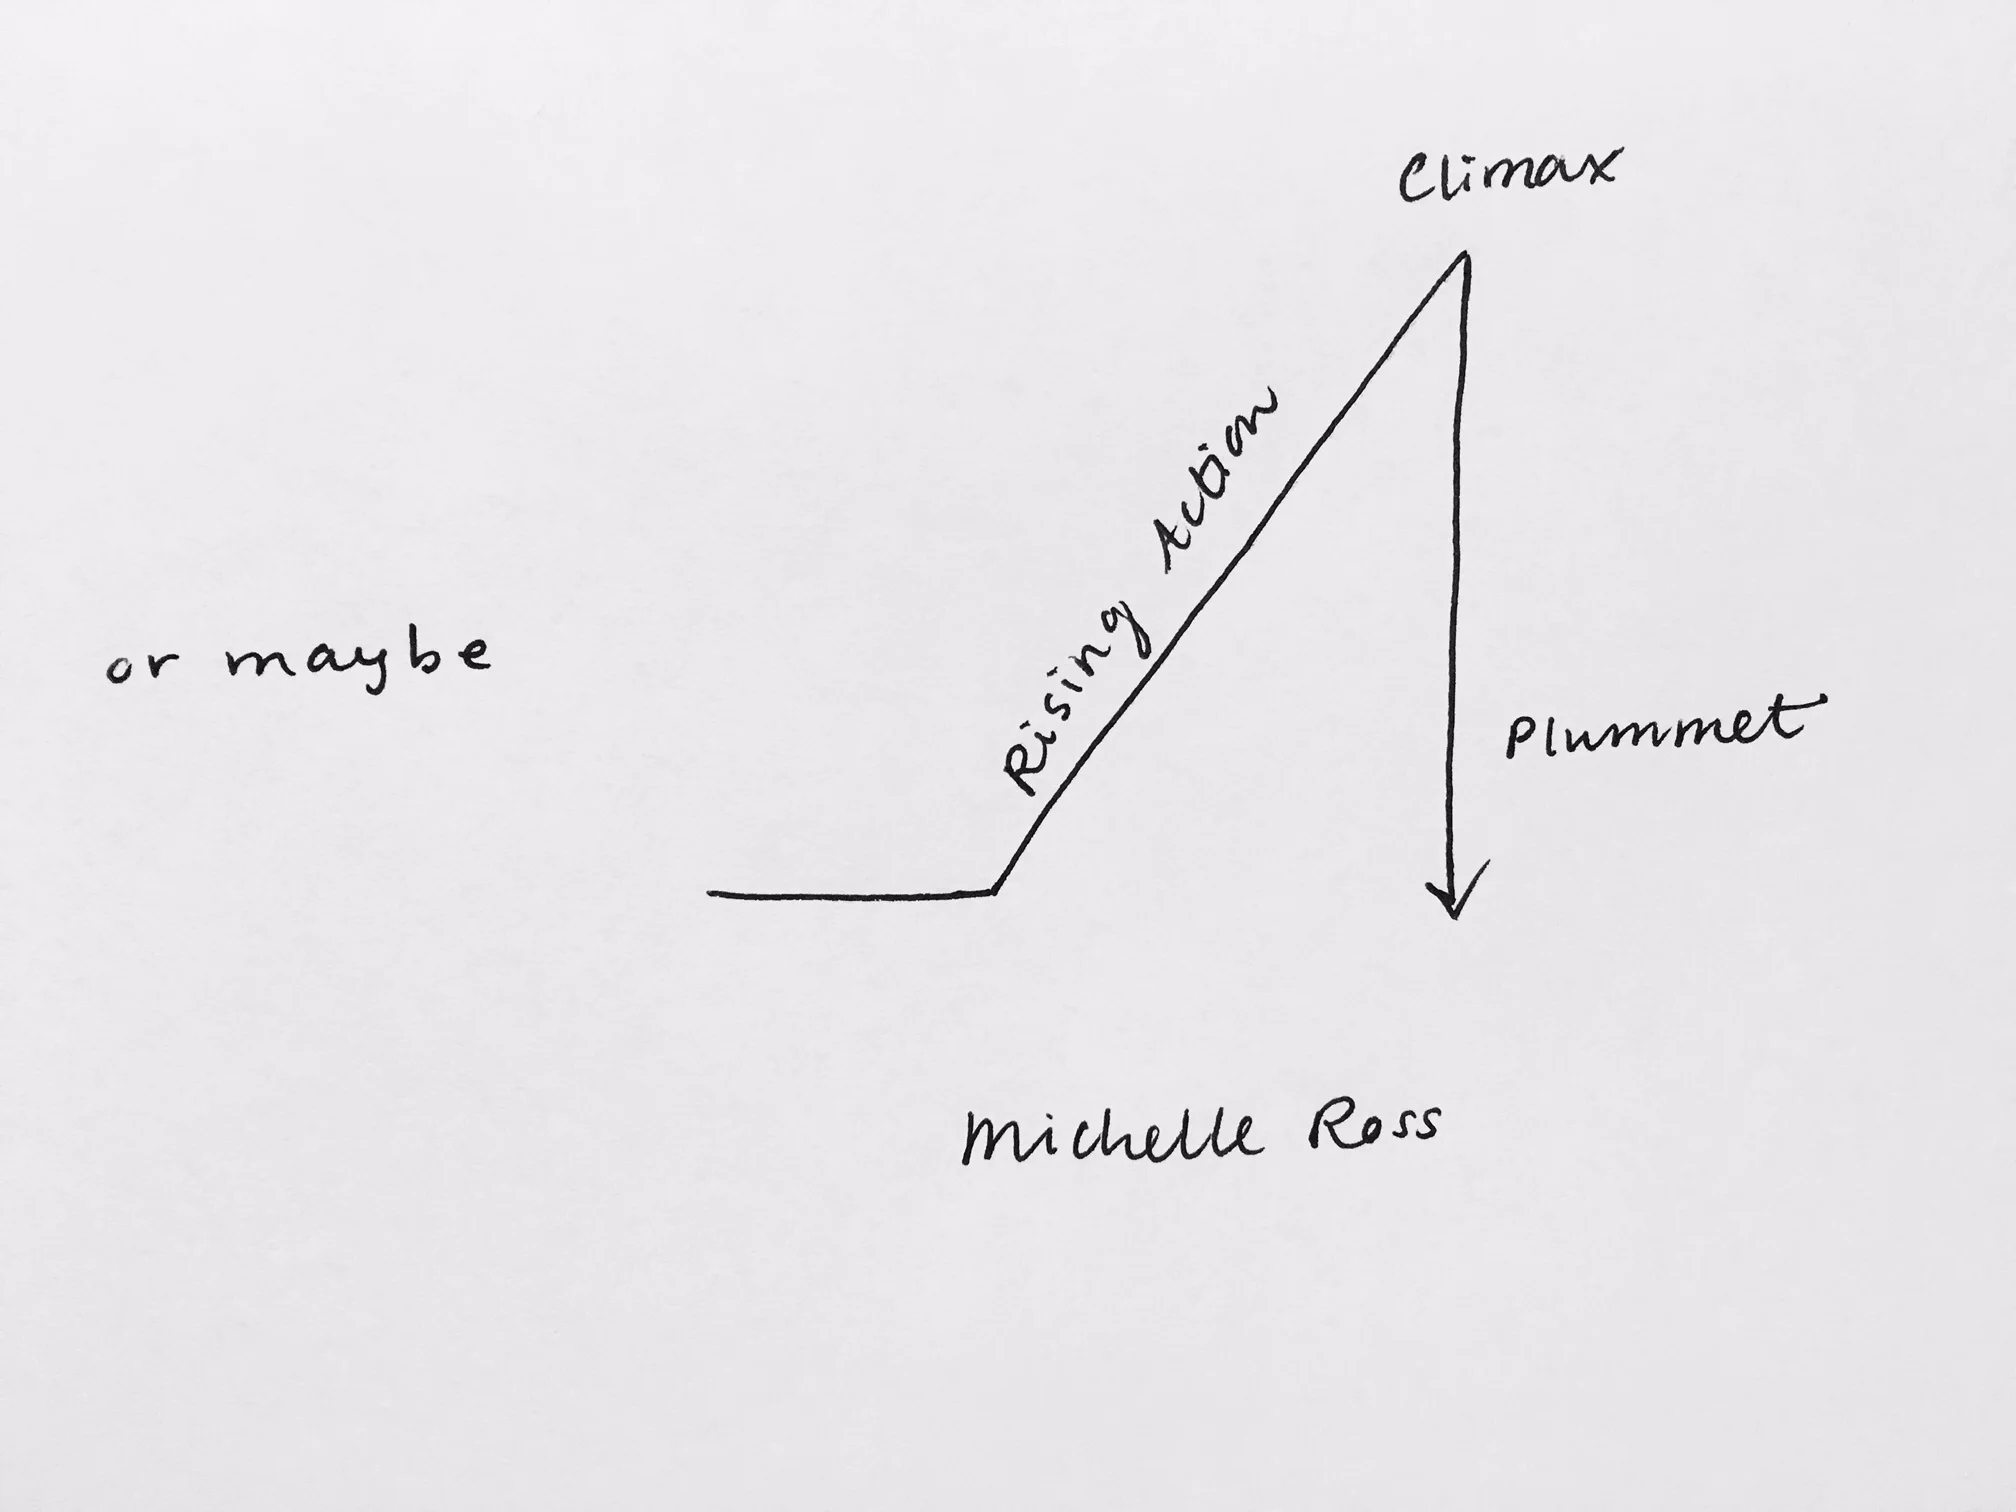 Climax
Rising Action
or maybe
Plummet
Michelle Ross